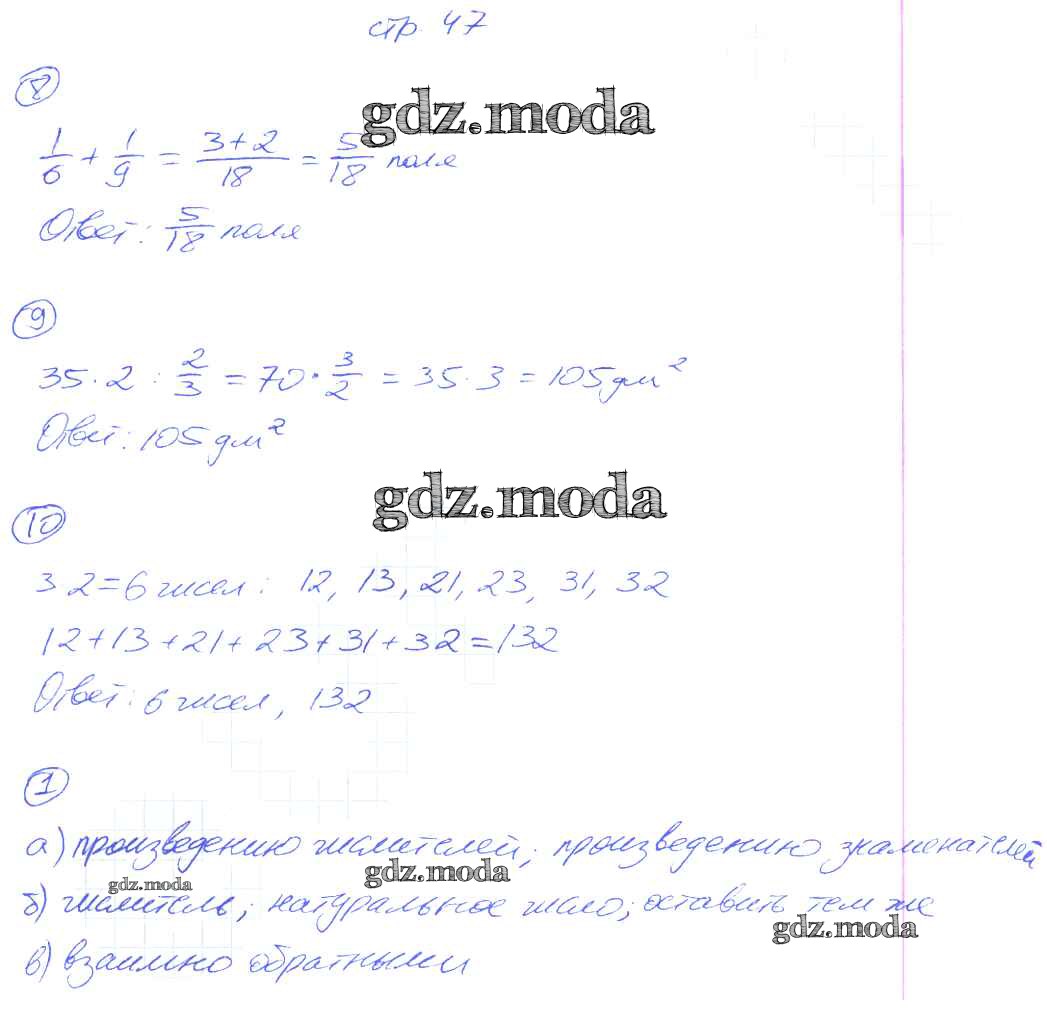 стр. 47
8
gdz.moda
1/6 + 1/9 = 3+2/18 = 5/18 поля
Ответ: 5/18 поля
9
35·2 : 2/3 = 70·3/2 = 35·3 = 105 дм²
Ответ: 105 дм²
gdz.moda
10
3·2=6 чисел: 12, 13, 21, 23, 31, 32
12+13+21+23+31+32=132
Ответ: 6 чисел, 132
1
а) произведению числителей; произведению знаменателей
gdz.moda gdz.moda
б) числитель; натуральное число; оставить тем же
gdz.moda
в) взаимно обратными